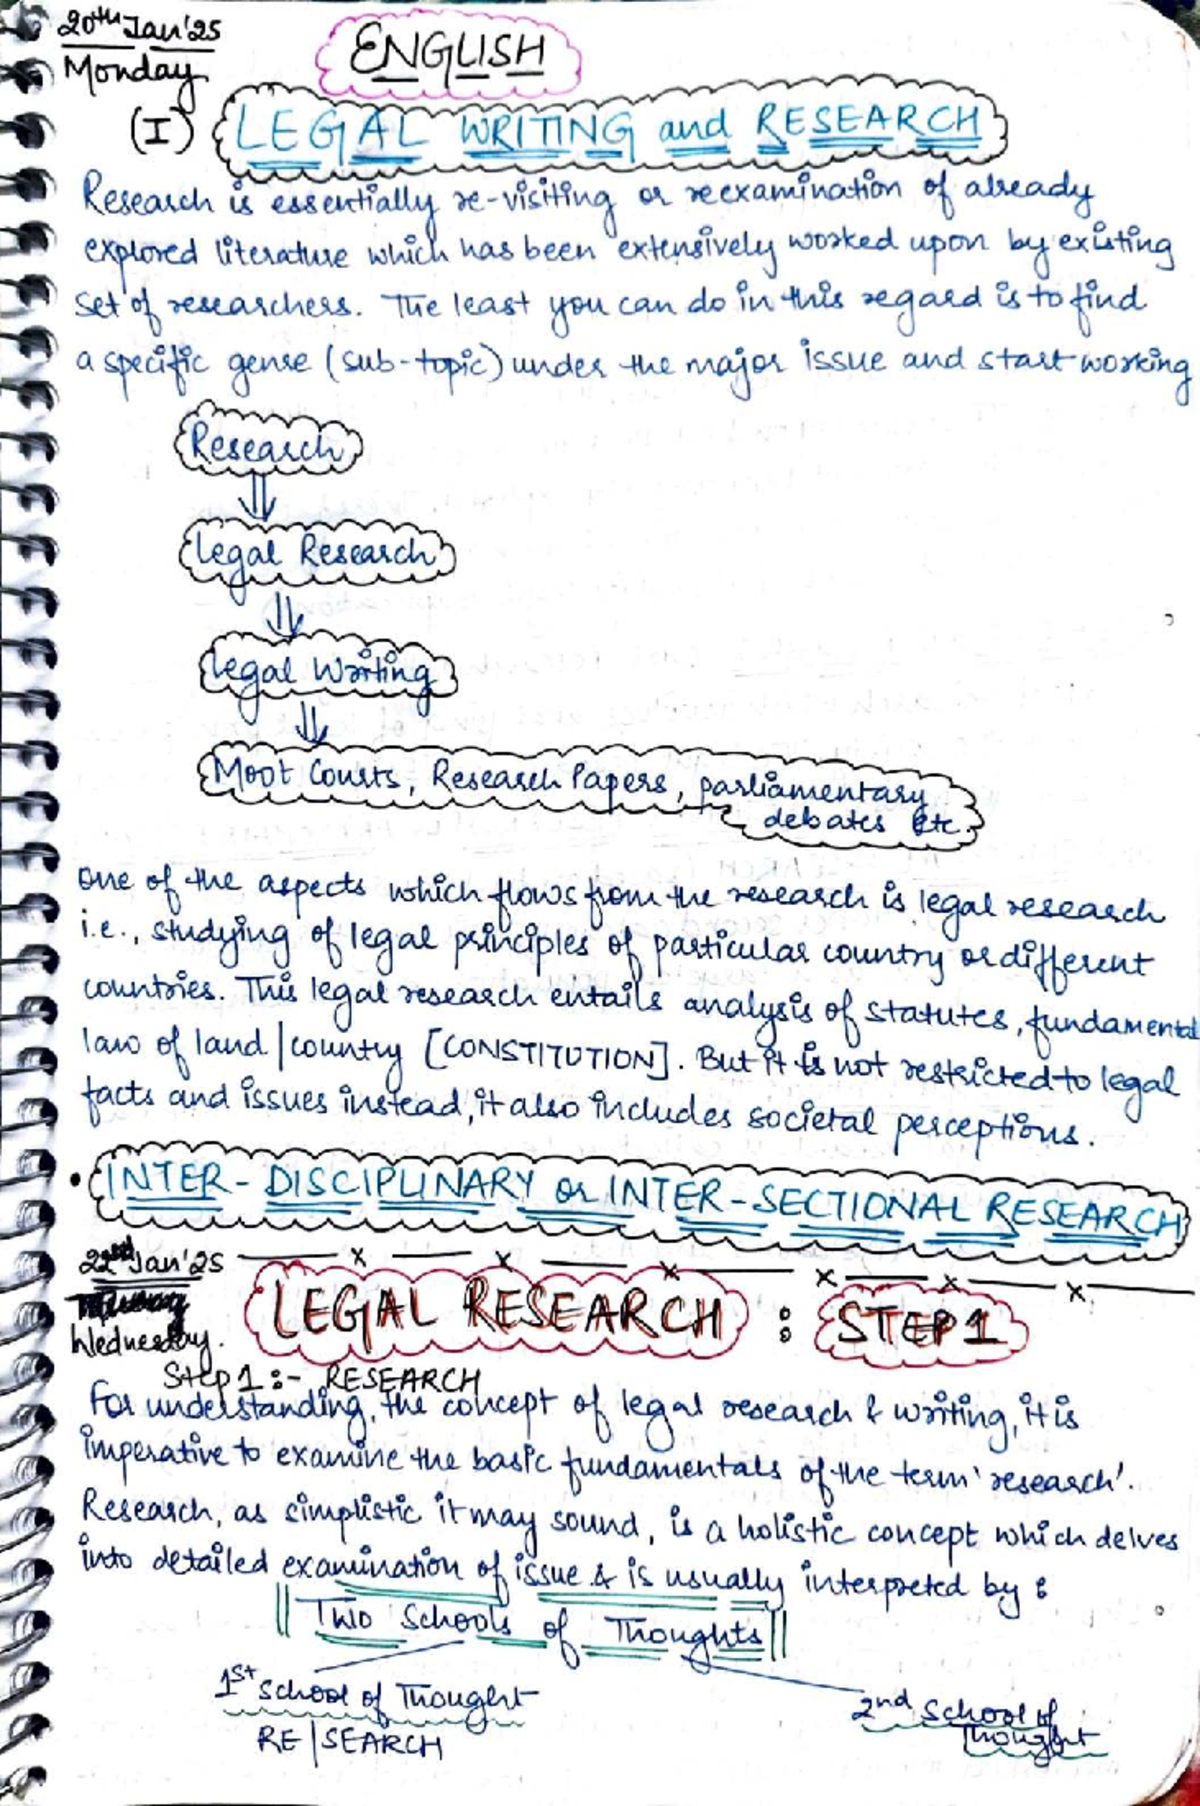 20th Jan'25
Monday
ENGLISH
(I) LEGAL WRITING and RESEARCH
Research is essentially re-visiting or reexamination of already
explored literature which has been extensively worked upon by existing
set of researchers. The least you can do in this regard is to find
a specific genre (sub-topic) under the major issue and start working
Research
Legal Research
Legal Writing
Moot Courts, Research Papers, parliamentary
debates etc.
One of the aspects which flows from the research is legal research
i.e., studying of legal principles of particular country or different
countries. This legal research entails analysis of statutes, fundamental
law of land/country [CONSTITUTION]. But it is not restricted to legal
facts and issues instead, it also includes societal perceptions.
• INTER-DISCIPLINARY or INTER-SECTIONAL RESEARCH
22nd Jan'25
Wednesday.
LEGAL RESEARCH : STEP 1
Step 1 :- RESEARCH
For understanding, the concept of legal research & writing, it is
imperative to examine the basic fundamentals of the term 'research'.
Research, as simplistic it may sound, is a holistic concept which delves
into detailed examination of issue & is usually interpreted by :
|| Two Schools of Thoughts ||
1st School of Thought
RE/SEARCH
2nd School of
Thought